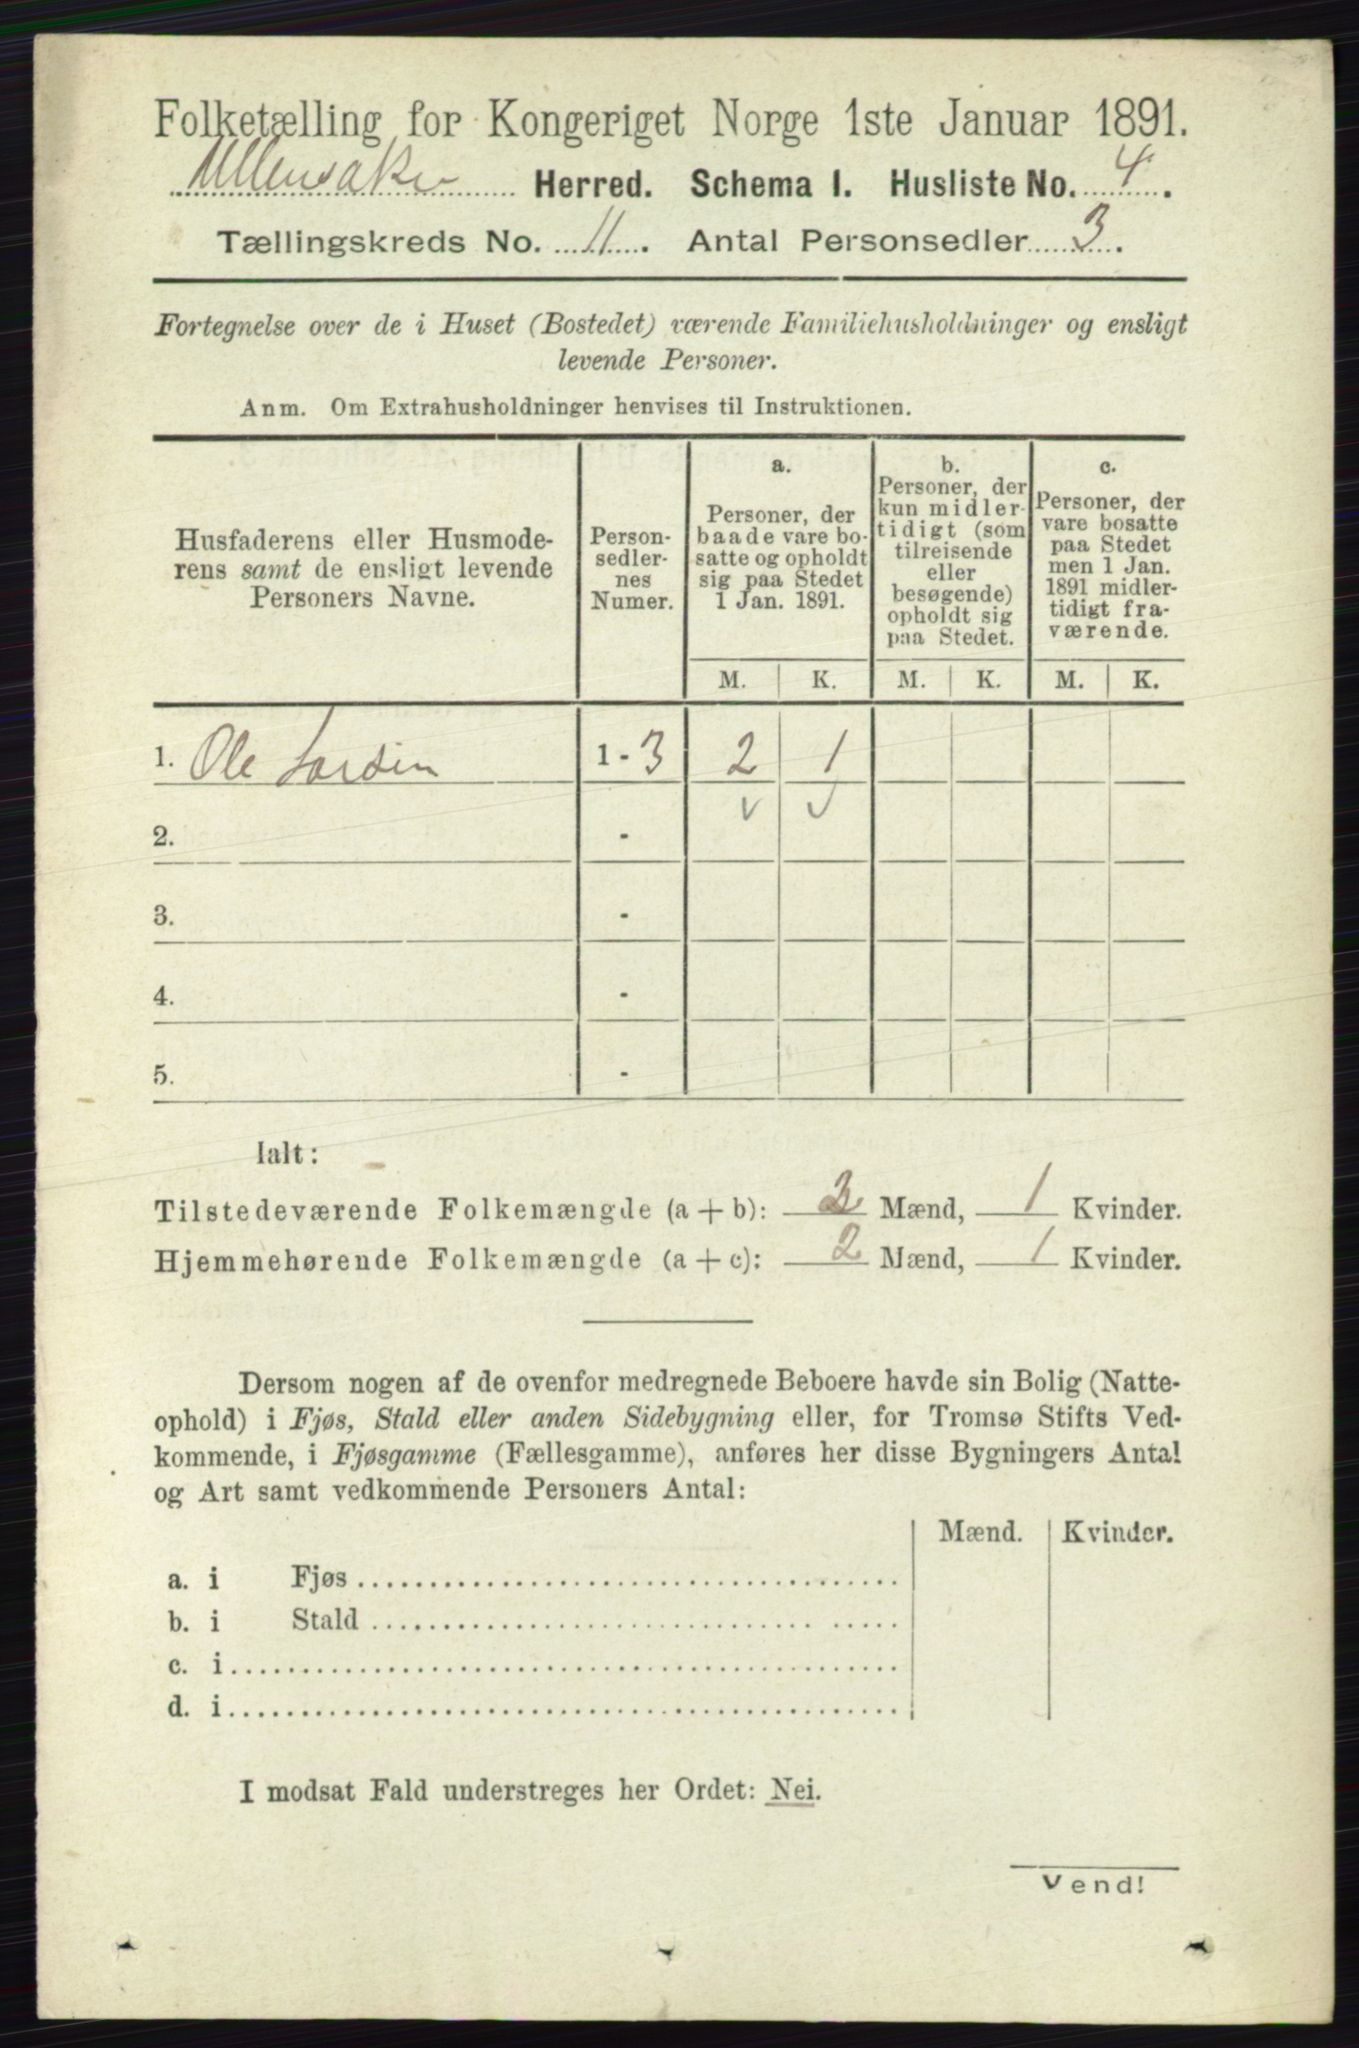 Folketælling for Kongeriget Norge 1ste Januar 1891.
Ullensaker Herred. Schema I. Husliste No. 4.
Tællingskreds No. 11. Antal Personsedler 3.
Fortegnelse over de i Huset (Bostedet) værende Familiehusholdninger og ensligt
levende Personer.
Anm. Om Extrahusholdninger henvises til Instruktionen.
Husfaderens eller Husmode-
rens samt de ensligt levende
Personers Navne.
Person-
sedler-
nes
Numer.
a.
Personer, der
baade vare bo-
satte og opholdt
sig paa Stedet
1 Jan. 1891.
b.
Personer, der
kun midler-
tidigt (som
tilreisende
eller
besøgende)
opholdt sig
paa Stedet.
c.
Personer, der
vare bosatte
paa Stedet
men 1 Jan.
1891 midler-
tidigt fra-
værende.
M. K. M. K. M. K.
1. Ole Larsen 1-3 2 1
2. -
3. -
4. -
5. -
Ialt:
Tilstedeværende Folkemængde (a + b): 2 Mænd, 1 Kvinder.
Hjemmehørende Folkemængde (a + c): 2 Mænd, 1 Kvinder.
Dersom nogen af de ovenfor medregnede Beboere havde sin Bolig (Natte-
ophold) i Fjøs, Stald eller anden Sidebygning eller, for Tromsø Stifts Ved-
kommende, i Fjøsgamme (Fællesgamme), anføres her disse Bygningers Antal
og Art samt vedkommende Personers Antal:
Mænd. Kvinder.
a. i Fjøs
b. i Stald
c. i
d. i
I modsat Fald understreges her Ordet: Nei.
Vend!